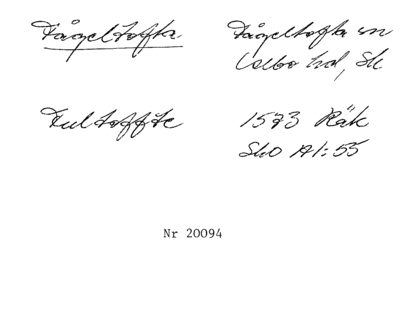 Fågeltofta
Fågeltofta sn
Albo hd, Sk
Fultoffte
1573 Räk
Skó A1:55
Nr 20094